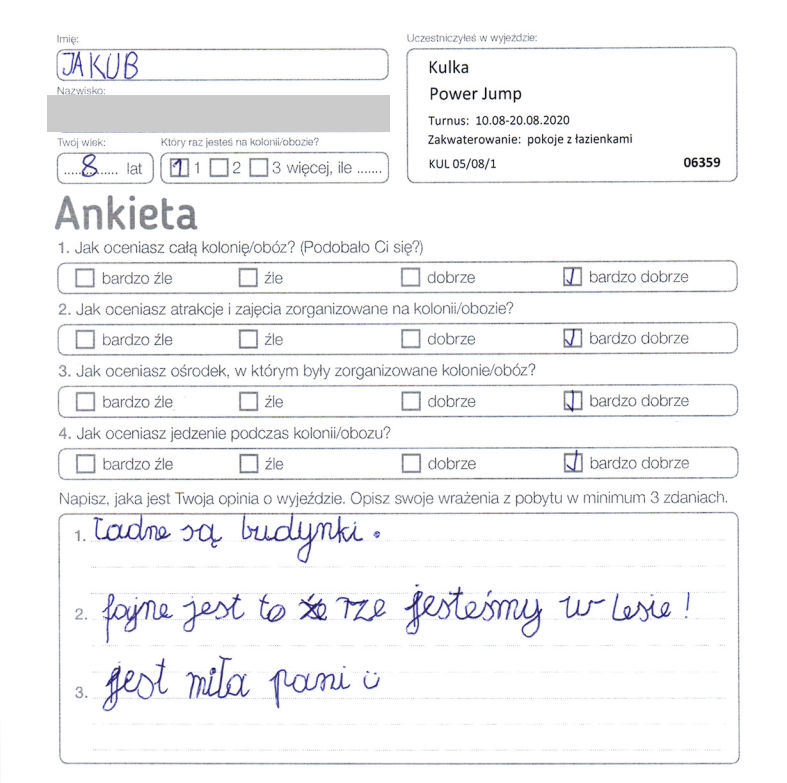 Imię:
JAKUB
Nazwisko:
Twój wiek:
8 lat
Który raz jesteś na kolonii/obozie?
1 1 2 3 więcej, ile .......
Uczestniczyłeś w wyjeździe:
Kulka
Power Jump
Turnus: 10.08-20.08.2020
Zakwaterowanie: pokoje z łazienkami
KUL 05/08/1 06359
Ankieta
1. Jak oceniasz całą kolonię/obóz? (Podobało Ci się?)
bardzo źle źle dobrze bardzo dobrze
2. Jak oceniasz atrakcje i zajęcia zorganizowane na kolonii/obozie?
bardzo źle źle dobrze bardzo dobrze
3. Jak oceniasz ośrodek, w którym były zorganizowane kolonie/obóz?
bardzo źle źle dobrze bardzo dobrze
4. Jak oceniasz jedzenie podczas kolonii/obozu?
bardzo źle źle dobrze bardzo dobrze
Napisz, jaka jest Twoja opinia o wyjeździe. Opisz swoje wrażenia z pobytu w minimum 3 zdaniach.
1. Ładne są budynki.
2. fajne jest to rze jesteśmy w lesie!
3. jest miła pani